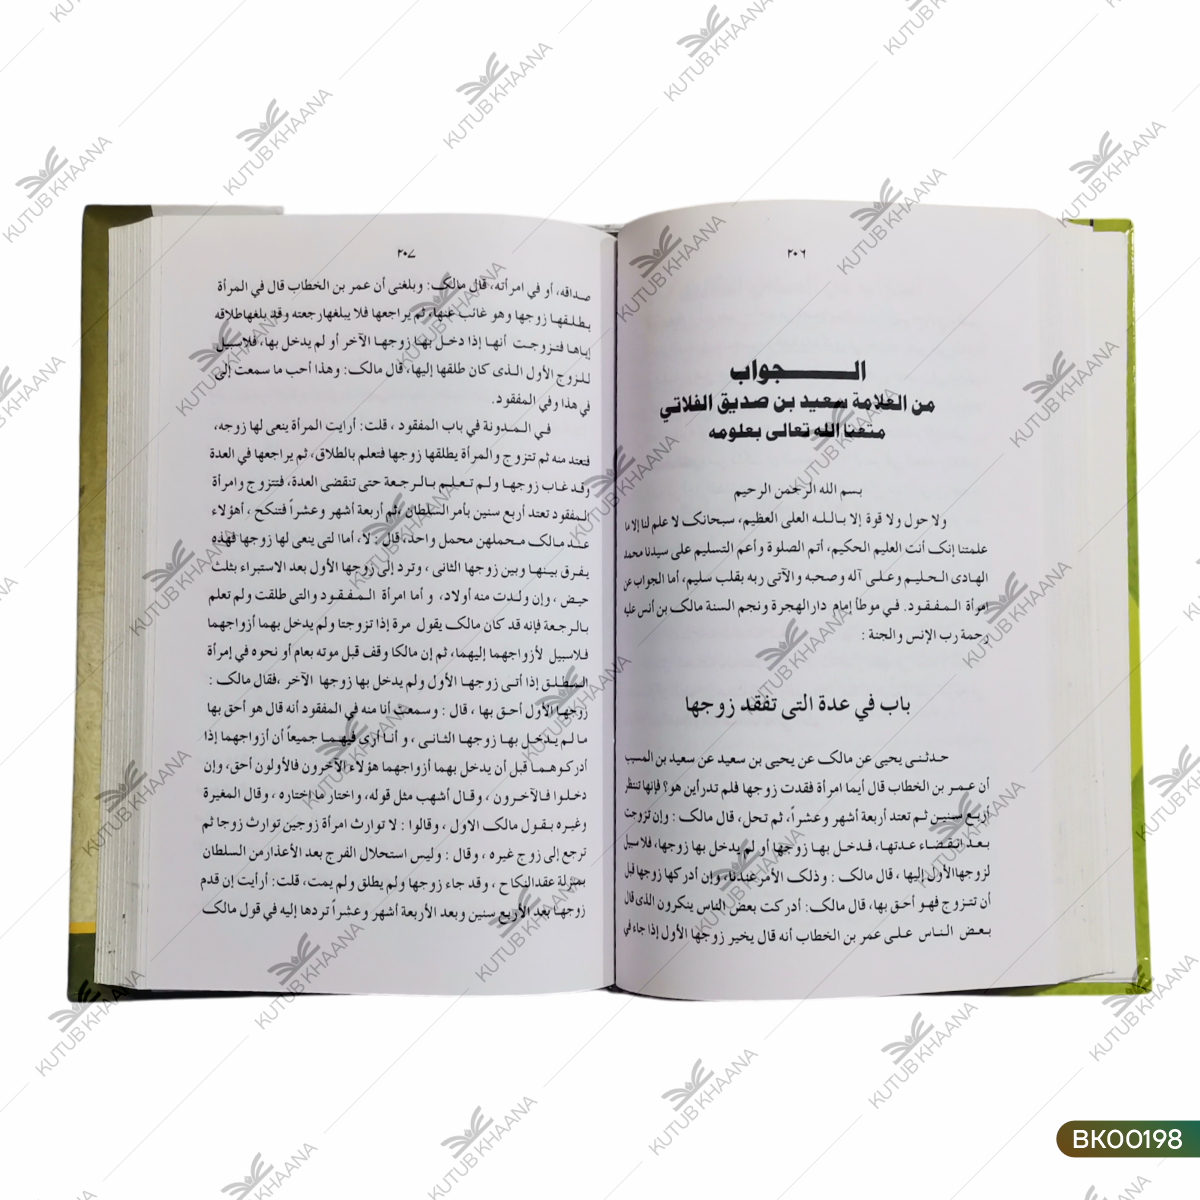 ٢٠٦
الـــــجواب
من العلامة سعيد بن صديق الفلاتي
متعنا الله تعالى بعلومه
بسم الله الرحمن الرحيم
ولا حول ولا قوة إلا بـالـلـه العلى العظيم، سبحانک لا علم لنا إلا ما
علمتنا إنک أنت العليم الحکيم، أتم الصلوة وأعم التسليم على سيدنا محمد
الهادى الـحـليـم وعـلـى آله وصحبه والآتى ربه بقلب سليم، أما الجواب عن
إمرأة الـمـفـقـود. فـي موطأ إمام دار الهجرة ونجم السنة مالک بن أنس عليه
رحمة رب الإنس والجنة :
باب في عدة التى تفقد زوجها
حـدثـنـى يحيى عن مالک عن يحيى بن سعيد عن سعيد بن المسيب
أن عـمـر بن الخطاب قال أيما امرأة فقدت زوجها فلم تدر أين هو؟ فإنها تنتظر
أربـع سـنيـن ثـم تعتد أربعة أشهر وعشراً، ثم تحل، قال مالک : وإن تزوجت
بـعـد انـقـضـاء عدتـهـا، فـدخـل بـهـا زوجها أو لم يدخل بها زوجها، فلا سبيل
لزوجها الأول إليها ، قال مالک : وذلک الأمر عندنا، وإن أدرکها زوجها قبل
أن تتـزوج فهـو أحـق بها، قال مالک: أدرکت بعض الناس ينکرون الذى قال
بـعـض الـنـاس عـلـى عمر بن الخطاب أنه قال يخير زوجها الأول إذا جاء في
٢٠٧
صداقه، أو في امرأته، قال مالک: وبلغنى أن عمر بن الخطاب قال في المرأة
يـطـلـقـهـا زوجها وهو غائب عنها، ثم يراجعها فلا يبلغها رجعته وقد بلغها طلاقه
إياهـا فتـزوجـت أنهـا إذا دخـل بـهـا زوجهـا الآخر أو لم يدخل بها، فلا سبيل
للـزوج الأول الـذى کان طلقها إليها، قال مالک: وهذا أحب ما سمعت إلى
في هذا وفي المفقود.
فـي الـمـدونة في باب المفقود ، قلت: أرايت المرأة ينعى لها زوجه،
فتعتد منه ثم تتزوج والمرأة يطلقها زوجها فتعلم بالطلاق، ثم يراجعها في العدة
وقـد غـاب زوجهـا ولـم تـعـلـم بـالـرجـعة حتى تنقضى العدة، فتتزوج وامرأة
المفقود تعتد أربع سنين بأمر السلطان، ثم أربعة أشهر وعشراً فتنکح ، أهؤلاء
عنـد مـالک مـحملهن محمل واحد، قال : لا، أما التى ينعى لها زوجها فهذه
يـفـرق بينـهـا وبين زوجها الثانى ، وترد إلى زوجها الأول بعد الاستبراء بثلث
حيـض ، وإن ولـدت منه أولاد، و أما امرأة الـمـفـقـود والتى طلقت ولم تعلم
بـالـرجـعة فإنه قد کان مالک يقول مرة إذا تزوجتا ولم يدخل بهما أزواجهما
فـلاسبيل لأزواجهما إليهما، ثم إن مالکا وقف قبل موته بعام أو نحوه في إمرأة
المـطـلـق إذا أتـى زوجهـا الأول ولم يدخل بها زوجها الآخر ، فقال مالک :
زوجهـا الأول أحـق بها ، قال : وسمعت أنا منه في المفقود أنه قال هو أحق بها
ما لـم يـدخـل بـهـا زوجهـا الثـانـى ، و أنـا أرى فيهـمـا جميعاً أن أزواجهما إذا
أدرکـوهـمـا قبل أن يدخل بهما أزواجهما هؤلاء الآخرون فالأولون أحق، وإن
دخلـوا فـالآخـرون ، وقـال أشهب مثل قوله، واختار ما إختاره ، وقال المغيرة
وغيـره بـقـول مالک الاول ، وقالوا : لا توارث امرأة زوجين توارث زوجا ثم
ترجع إلى زوج غيره ، وقال : وليس استحلال الفرج بعد الأعذار من السلطان
بمنزلة عقد النکاح ، وقد جاء زوجها ولم يطلق ولم يمت، قلت: أرأيت إن قدم
زوجهـا بعد الأربع سنين وبعد الأربعة أشهر وعشراً تردها إليه في قول مالک
KUTUB KHAANA
BK00198